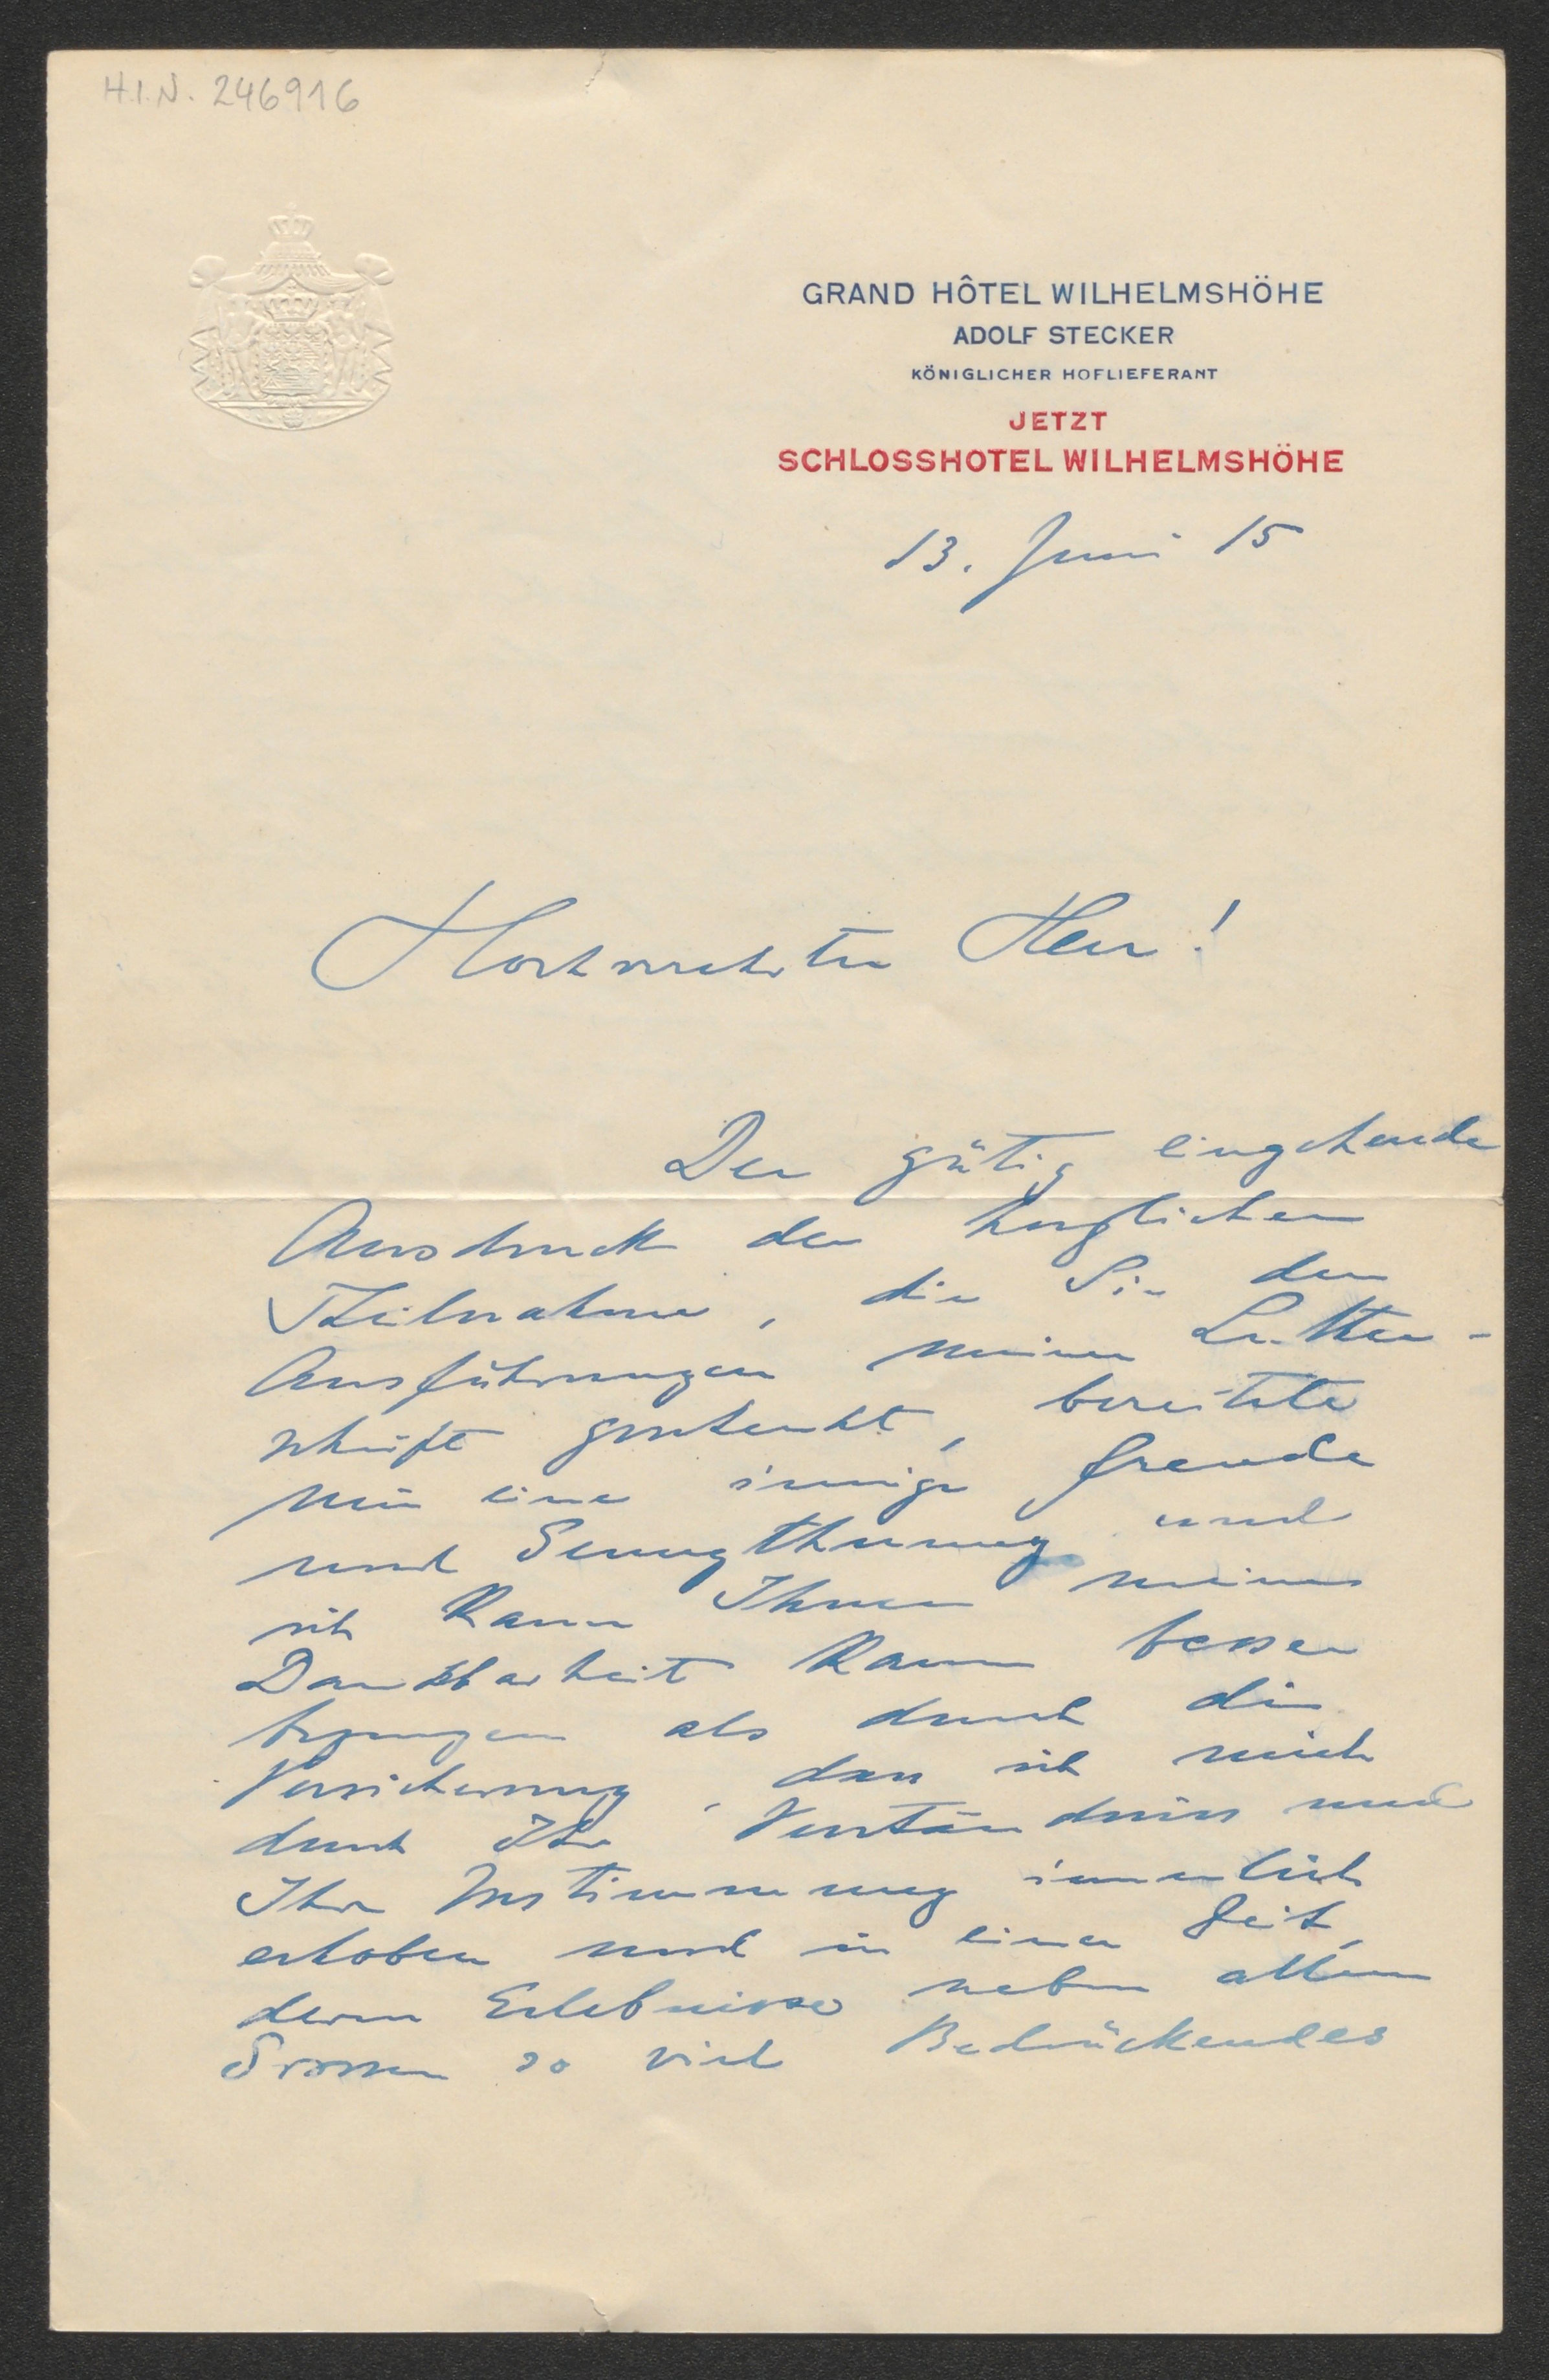 H.I.N. 246916
GRAND HÔTEL WILHELMSHÖHE
ADOLF STECKER
KÖNIGLICHER HOFLIEFERANT
JETZT
SCHLOSSHOTEL WILHELMSHÖHE
13. Juni 15
Hochverehrter Herr!
Der gütig eingehende
Ausdruck der herzlichen
Theilnahme, die Sie den
Ausführungen meiner Luther-
schrift geschenkt, bereitete
mir eine innige Freude
und Genugthuung und
ich kann Ihnen meine
Dankbarkeit kaum besser
bezeugen als durch die
Versicherung, dass ich mich
durch Ihr Verständniss und
Ihre Zustimmung innerlich
erhoben und in einer Zeit,
deren Erlebnisse neben allem
Grossen so viel Bedrückendes